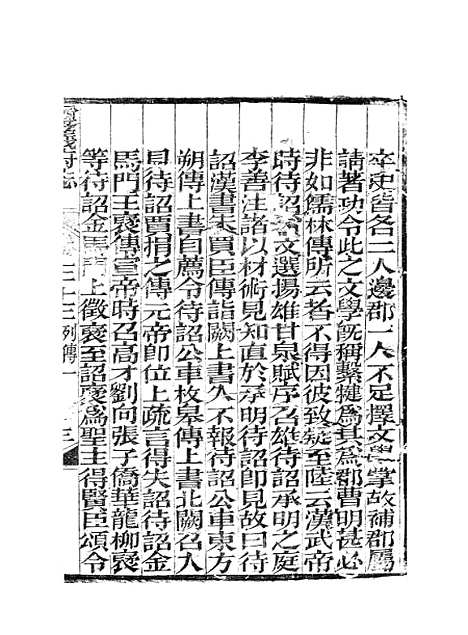 卒史皆各二人邊郡一人不足擇文學掌故補郡屬
請著功令此之文學旣稱繫犍爲其爲郡曹明甚必
非如儒林傳所云者不得因彼致疑至陸云漢武帝
時待詔案文選揚雄甘泉賦序召雄待詔承明之庭
李善注諸以材術見知直於承明待詔卽見故曰待
詔漢書朱買臣傳詣闕上書久不報待詔公車東方
朔傳上書自薦令待詔公車枚皋傳上書北闕召入
見待詔賈捐之傳元帝卽位上疏言得失待詔金
馬門王褒傳宣帝時召高才劉向張子僑華龍柳褒
等待詔金馬門上徵褒至詔褒爲聖主得賢臣頌令
遵義府志 三十三 列傳一